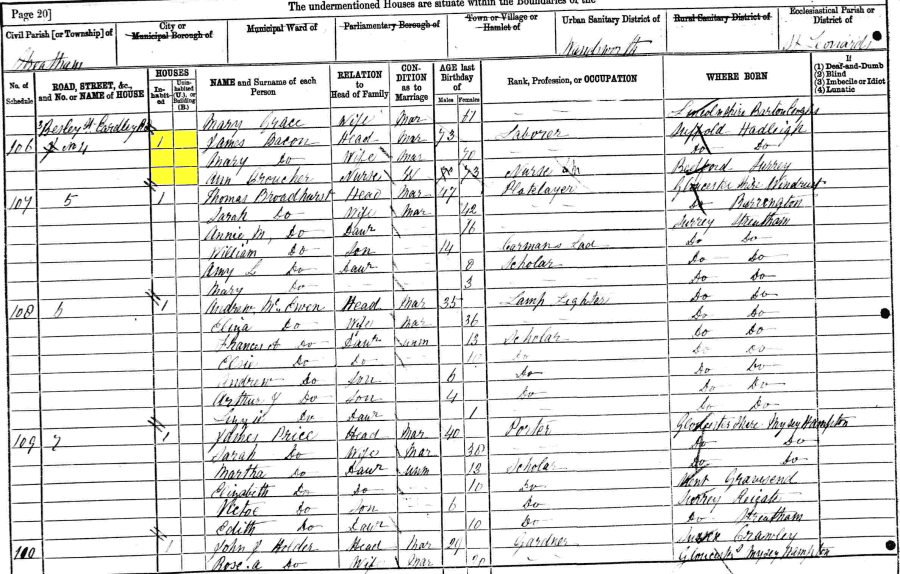 The undermentioned Houses are situate within the Boundaries of the
Page 20]
Civil Parish [or Township] of
City or Municipal Borough of
Municipal Ward of
Parliamentary Borough of
Town or Village or Hamlet of
Urban Sanitary District of
Rural Sanitary District of
Ecclesiastical Parish or District of
Streatham
Wandsworth
St Leonards
No. of Schedule
ROAD, STREET, &c., and No. or NAME of HOUSE
HOUSES
In-habited
Uninhabited (U.), or Building (B.)
NAME and Surname of each Person
RELATION to Head of Family
CONDITION as to Marriage
AGE last Birthday of
Males
Females
Rank, Profession, or OCCUPATION
WHERE BORN
If
(1) Deaf-and-Dumb
(2) Blind
(3) Imbecile or Idiot
(4) Lunatic
Mary Grace Wife Mar Lincolnshire
106 1 James Bacon Head Mar 73 Laborer Suffold Hadleigh
Mary Do Wife Mar 70 Do Do
Ann Nurse W 73 Nurse Surrey
107 5 1 Thomas Broadhurst Head Mar 47 Platelayer
Sarah Do Wife Mar 42 Do Burrington
Annie M, Do Daur 16 Surrey Streatham
William Do Son 14 Carmans Lad Do Do
Amy L Do Daur 8 Scholar Do Do
Mary Do 3 Do Do
108 6 1 Andrew McEwen Head Mar 35 Lamp Lighter Do Do
Eliza Do Wife Mar 36 Do Do
Frances A Do Daur unm 13 Scholar Do Do
Do Do 10 Do Do Do
Andrew Do Son 6 Do Do Do
Arthur J Do Son 4 Do Do Do
Lizzie Do Daur 1 Do Do
109 7 1 James Price Head Mar 40 Porter
Sarah Do Wife Mar 38 Do Do
Martha Do Daur unm 13 Scholar Do Do
Elizabeth Do Do 10 Do Kent Gravesend
Victor Do Son 6 Do Surrey Reigate
Edith Do Daur 10 Do Do Streatham
1 John J Holder Head Mar 29 Gardner Sussex Crawley
Rose A Do Wife Mar